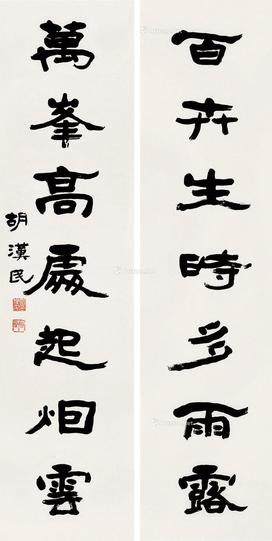 百卉生時多雨露
萬峯高處起烟雲
胡漢民